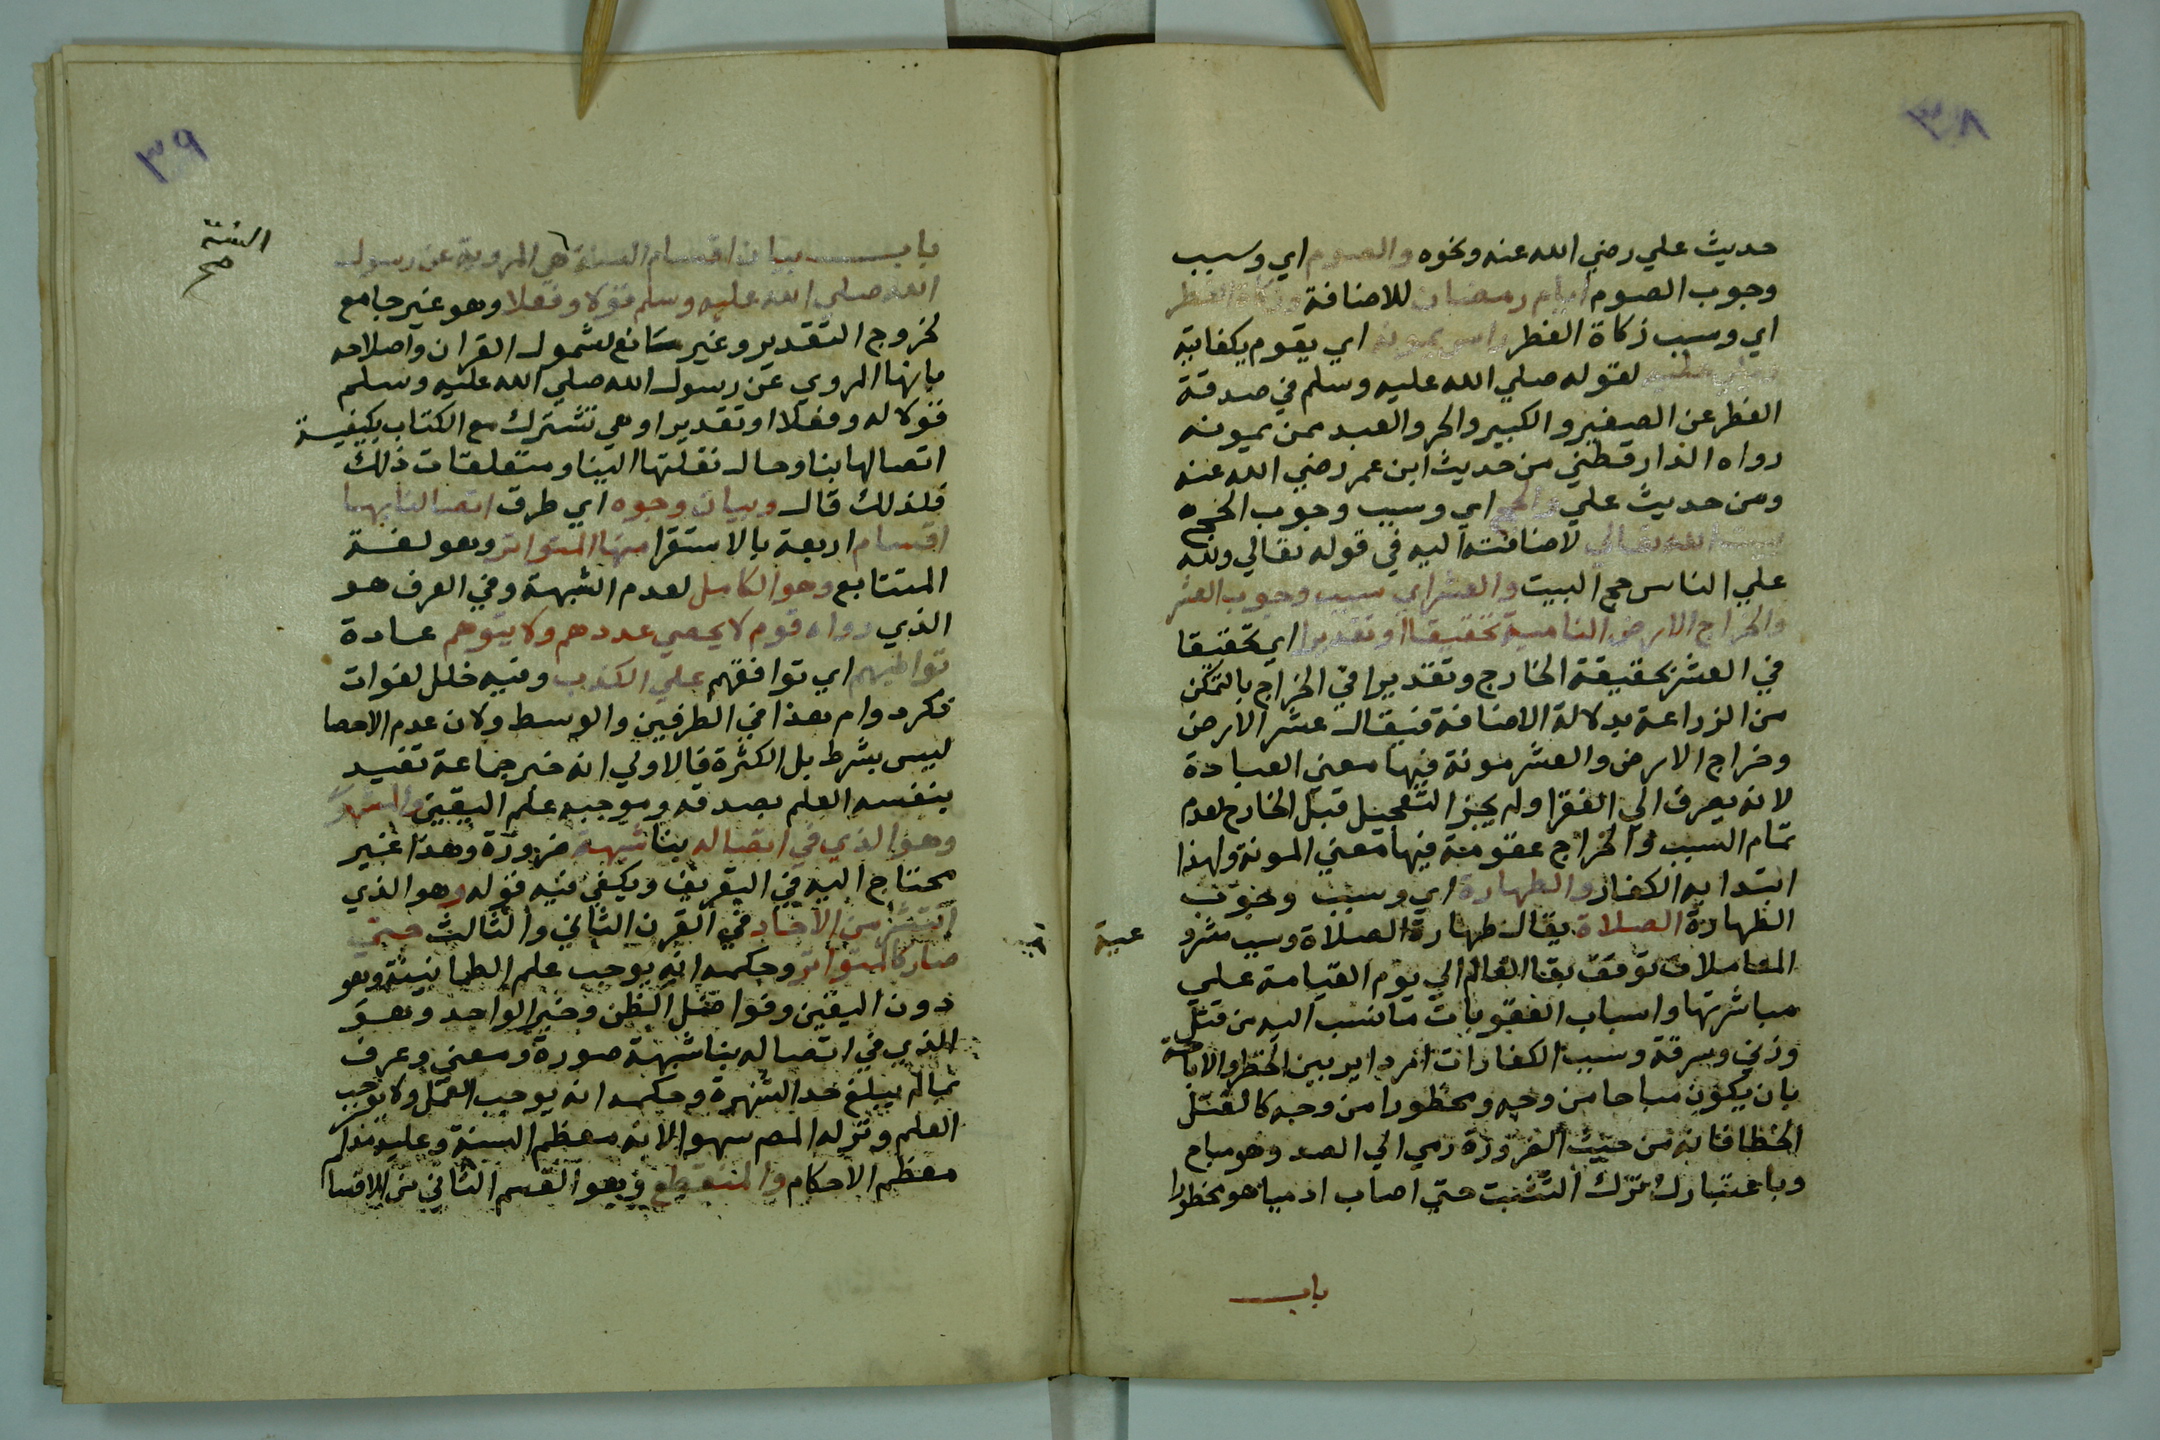 ٣٨
حديث علي رضي الله عنه ونحوه والصوم اي وسبب
وجوب الصوم ايام رمضان للاضافة وزكاة الفطر
اي وسبب زكاة الفطر راس يمونه اي يقوم بكفايته
لقوله صلي الله عليه وسلم في صدقة
الفطر عن الصغير والكبير والحر والعبد ممن يمونه
رواه الدارقطني من حديث ابن عمر رضي الله عنه
ومن حديث علي والحج اي وسبب وجوب الحج
بيت الله تعالي لاضافته اليه في قوله تعالي ولله
علي الناس حج البيت والعشر اي سبب وجوب العشر
والخراج الارض النامية تحقيقا او تقديرا اي تحقيقا
في العشر بحقيقة الخارج وتقديرا في الخراج بالتمكن
من الزراعة بدلالة الاضافة فيقال عشر الارض
وخراج الارض والعشر مونة فيها معني العبادة
لانه يصرف الي الفقرا ولم يجز التعجيل قبل الخارج لعدم
تمام السبب والخراج عقوبة فيها معني المونة ولهذا
ابتدا به الكفار والطهارة اي وسبب وجوب
الطهارة الصلاة يقال طهارة الصلاة وسبب مشرو
عية
المعاملات توقف بقا العالم الي يوم القيامة علي
مباشرتها واسباب العقوبات ما نسب اليه من قتل
وزني وسرقة وسبب الكفارات امر داير بين الحظر والاباحة
بان يكون مباحا من وجه ومحظورا من وجه كالقتل
الخطا فانه من حيث الضرورة رمي الي الصد وهو مباح
وباعتبار ترك التثبت حتي اصاب ادميا هو محظورا
باب
٣٩
باب بيان اقسام السنة هي المروية عن رسول
السنة
صح
الله صلي الله عليه وسلم قولا وفعلا وهو غير جامع
لخروج التقدير وغير مانع لشمول القران واصلاحه
بانها المروي عن رسول الله صلي الله عليه وسلم
قولا له وفعلا او تقديرا وهي تشترك مع الكتاب بكيفية
اتصالها بنا وحال نقلتها الينا ومتعلقات ذلك
فلذلك قال وبيان وجوه اي طرق اتصالنا بها
اقسام اربعة بالاستقرا منها المتواتر وهو لغة
المتتابع وهو الكامل لعدم الشبهة وفي العرف هو
الذي رواه قوم لا يحصي عددهم ولا يتوهم عادة
تواطيهم اي توافقهم علي الكذب وفيه خلل لفوات
ذكر دوام هذا في الطرفين والوسط ولان عدم الاحصا
ليس بشرط بل الكثرة فالاولي انه خبر جماعة تفيد
بنفسه العلم بصدقه وموجبه علم اليقين والمشهور
وهو الذي في اتصاله بنا شبهة ضرورة وهذا غير
محتاج اليه في التعريف ويكفي فيه قوله وهو الذي
انتشر من الآحاد في القرن الثاني والثالث حتي
صار كالمتواتر وحكمه انه يوجب علم الطمانينة وهو
دون اليقين وفوا صل الظن وخبر الواحد وهو
الذي في اتصاله بنا شبهة صورة ومعني وعرف
بما لم يبلغ حد الشهرة وحكمه انه يوجب العمل ولا يوجب
العلم وتركه المص سهوا لانه معظم السنة وعليه مدار
معظم الاحكام والمنقطع وهو القسم الثاني من الاقسا